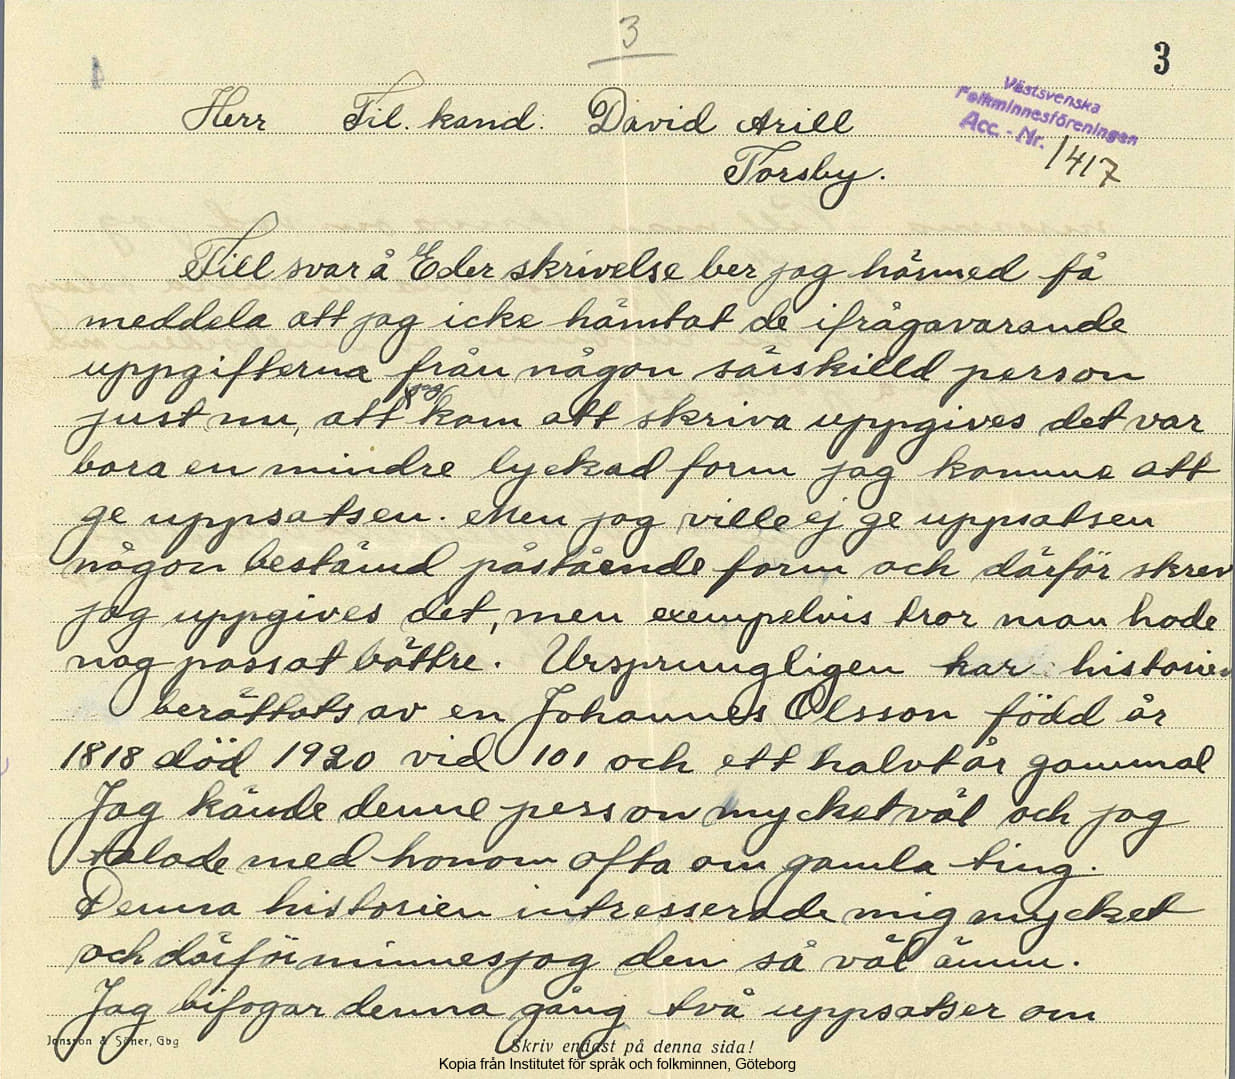 3
3
Västsvenska
Folkminnesföreningen
Acc. - Nr. 1417
Herr Fil. kand. David Arill
Torsby.
Till svar å Eder skrivelse ber jag härmed få
meddela att jag icke hämtat de ifrågavarande
uppgifterna från någon särskilld person
just nu, att jag kom att skriva uppgives det var
bara en mindre lyckad form jag komme att
ge uppsatsen. Men jag ville ej ge uppsatsen
någon bestämd påstående form och därför skrev
jag uppgives det, men exempelvis tror man hade
nog passat bättre. Ursprungligen har historien
berättats av en Johannes Olsson född år
1818 död 1920 vid 101 och ett halvt år gammal
Jag kände denne person mycket väl och jag
talade med honom ofta om gamla ting.
Denna historien intresserade mig mycket
och därför minnes jag den så väl ännu.
Jag bifogar denna gång två uppsatser om
Jonsson & Söner, Gbg
Skriv endast på denna sida!
Kopia från Institutet för språk och folkminnen, Göteborg